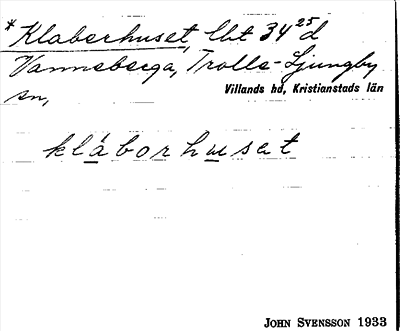 *Klaberhuset, lbt 34²⁵ d
Vanneberga, Trolle-Ljungby
sn, Villands hd, Kristianstads län
klábo̲rhu̲set
John Svensson 1933